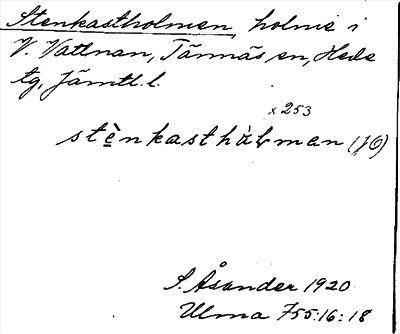 Stenkastholmen, holme i
V. Vattnan, Tännäs sn, Hede
tg, Jämtl. l.
x 253
stènkasthàlman (JÖ)
S. Åsander 1920
Ulma 755:16:18